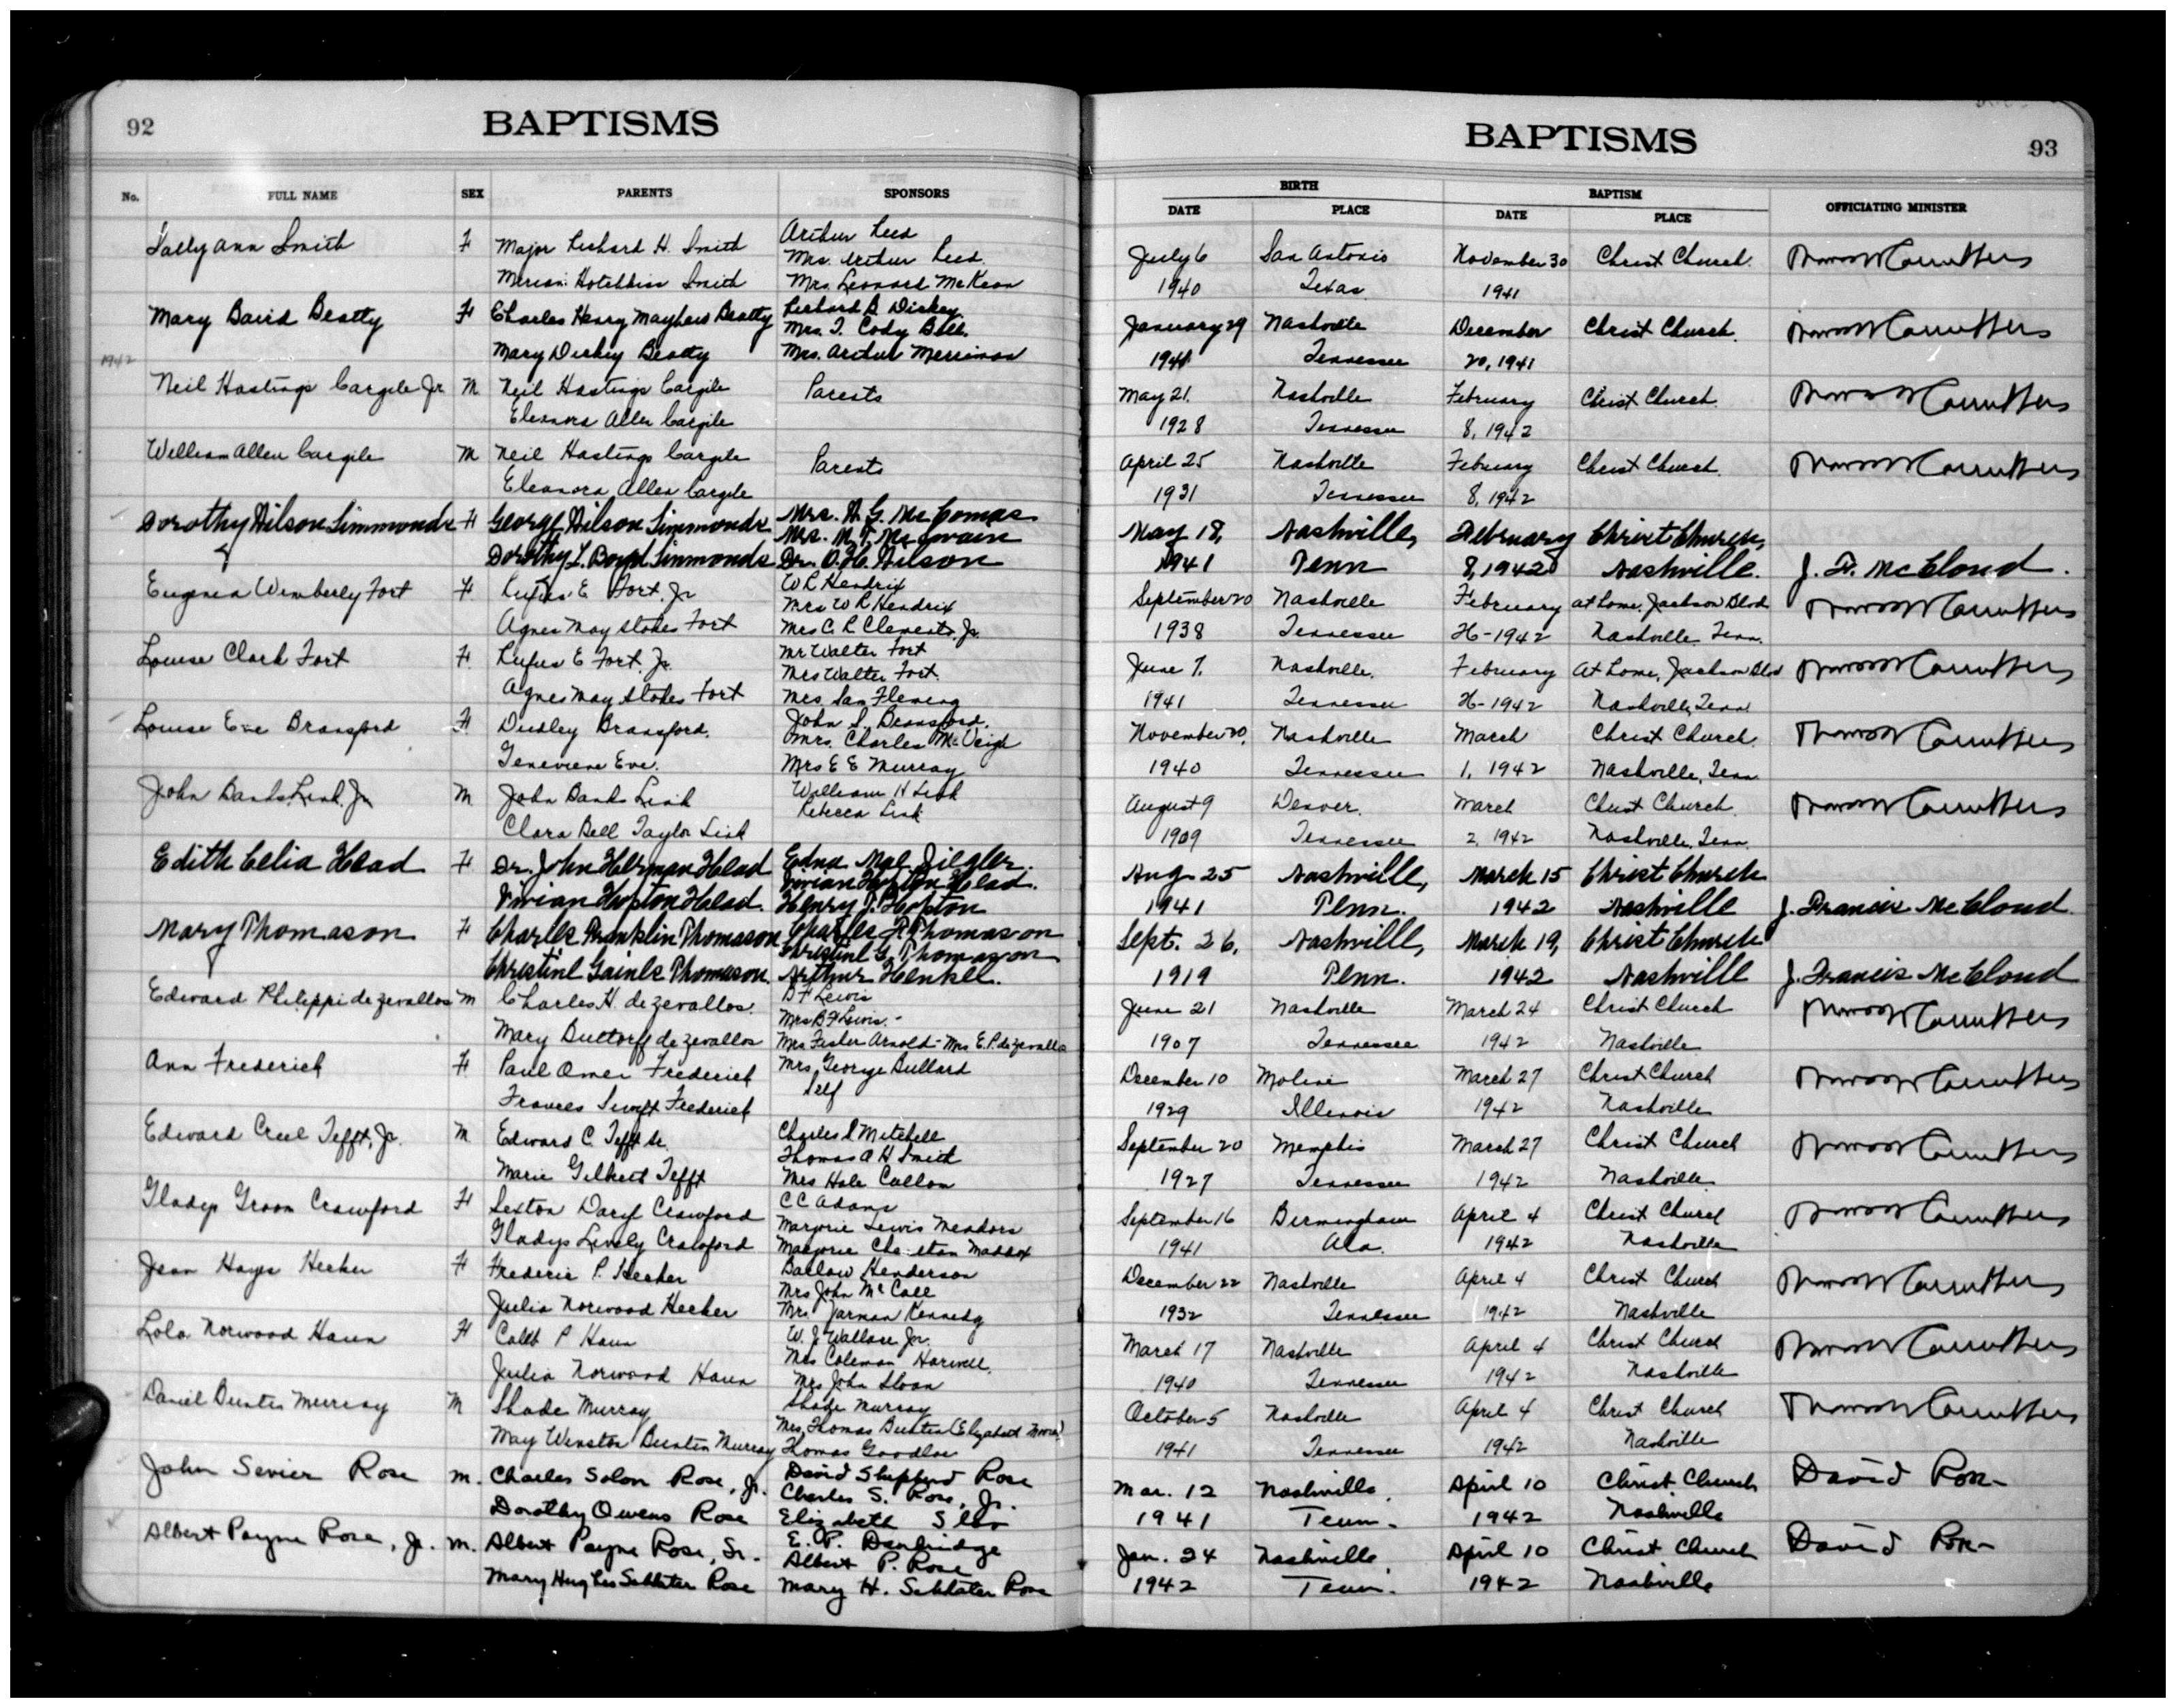 92
BAPTISMS
No. FULL NAME SEX PARENTS SPONSORS
Sally Ann Smith F Major Richard H. Smith Arthur Reed
Mrs. Arthur Reed.
Hotchkiss Smith Mrs. Leonard McKeon
Mary Baird Beatty F Charles Henry Mayhew Beatty Richard B Dickey.
Mrs. T. Cody Bell.
Mary Dickey Beatty Mrs. Arthur Merriman
1942
Neil Hastings Cargile Jr M Neil Hastings Cargile Parents
Eleanora Allen Cargile
William Allen Cargile M Neil Hastings Cargile Parents
Eleanora Allen Cargile
Dorothy Wilson Simmonds F George Wilson Simmonds Mrs. H. G. McComas
Mrs. M. T. McSwain
Dorothy L. Boyd Simmonds Dr. O. H. Wilson
Eugenia Wimberly Fort F. Rufus E Fort, Jr W R Hendrix
Mrs W R Hendrix
Agnes May Stokes Fort Mrs C. R Clements, Jr.
Louise Clark Fort F. Rufus E Fort, Jr. Mr Walter Fort
Mrs Walter Fort.
Agnes May Stokes Fort Mrs Sam Fleming
Louise Eve Bransford F Dudley Bransford. John S. Bransford.
Mrs. Charles McVeigh
Genevieve Eve. Mrs E E Murray
John Banks Link, Jr M John Banks Link William H Link
Rebecca Link
Clara Bell Taylor Link
Edith Celia Head F Dr. John Herman Head Edna Mae Ziegler.
Vivian Hupton Head.
Vivian Hupton Head. Henry J. Hupton
Mary Thomason F Charles Franklin Thomason Charles F. Thomason
Christine G. Thomason
Christine Gaines Thomason. Arthur Henkel.
Edward Philippi de zevallos M Charles H. de zevallos. B F Lewis
Mrs B F Lewis.-
Mary Buttorff de zevallos Mrs Arnold - Mrs E. P. de zevallos
Ann Frederick F. Paul Omer Frederick Mrs. George Bullard
Self
Frances Swift Frederick
Edward Creel Tefft, Jr. M Edward C. Tefft Sr. Charles S Mitchell
Thomas A H Smith
Marie Gilbert Tefft Mrs Hale Callon
Gladys Groom Crawford F Sexton Daryl Crawford C C Adams
Marjorie Lewis Meadors
Gladys Lively Crawford Marjorie Maddox
Jean Hayes Hecker F Frederic P. Hecker Barlow Henderson
Mrs John McCall
Julia Norwood Hecker Mrs. Jarman Kennedy
Lola Norwood Haun F Caleb P Haun W. J Wallace Jr.
Mrs Coleman Harwell.
Julia Norwood Haun Mrs John Sloan
Daniel Buntin Murray M Shade Murray Shade Murray
Mrs. Thomas Buntin (Elizabeth Moore)
May Winston Buntin Murray Thomas Goodloe
John Sevier Rose M. Charles Solon Rose, Jr. David Shepherd Rose
Charles S. Rose, Jr.
Dorothy Owens Rose Elizabeth
Albert Payne Rose, Jr. M. Albert Payne Rose, Sr. E. P. Dandridge
Albert P. Rose
Mary Hughes Schlater Rose Mary H. Schlater Rose
BAPTISMS
93
BIRTH BAPTISM OFFICIATING MINISTER
DATE PLACE DATE PLACE
July 6 San Antonio November 30 Christ Church.
1940 Texas 1941
January 29 Nashville December Christ Church.
1941 Tennessee 20, 1941
May 21. Nashville February Christ Church.
1928 Tennessee 8, 1942
April 25 Nashville February Christ Church.
1931 Tennessee 8, 1942
May 18, Nashville, February Christ Church,
1941 Tenn 8, 1942 Nashville. J. F. McCloud.
September 20 Nashville February at home, Jackson Blvd
1938 Tennessee 26-1942 Nashville Tenn.
June 7. Nashville. February At home, Jackson Blvd
1941 Tennessee 26-1942 Nashville, Tenn
November 20, Nashville March Christ Church.
1940 Tennessee 1, 1942 Nashville, Tenn
August 9 Denver. March Christ Church
1909 Tennessee 2, 1942 Nashville, Tenn.
Aug 25 Nashville, March 15 Christ Church
1941 Tenn. 1942 Nashville J. Francis McCloud.
Sept. 26, Nashville, March 19, Christ Church
1919 Tenn. 1942 Nashville J. Francis McCloud
June 21 Nashville March 24 Christ Church
1907 Tennessee 1942 Nashville
December 10 Moline March 27 Christ Church
1929 Illinois 1942 Nashville
September 20 Memphis March 27 Christ Church
1927 Tennessee 1942 Nashville
September 16 Birmingham April 4 Christ Church
1941 Ala. 1942 Nashville
December 22 Nashville April 4 Christ Church
1932 Tennessee 1942 Nashville
March 17 Nashville April 4 Christ Church
1940 Tennessee 1942 Nashville
October 5 Nashville April 4 Christ Church
1941 Tennessee 1942 Nashville
Mar. 12 Nashville. April 10 Christ Church David Rose
1941 Tenn. 1942 Nashville
Jan. 24 Nashville April 10 Christ Church David Rose
1942 Tenn. 1942 Nashville